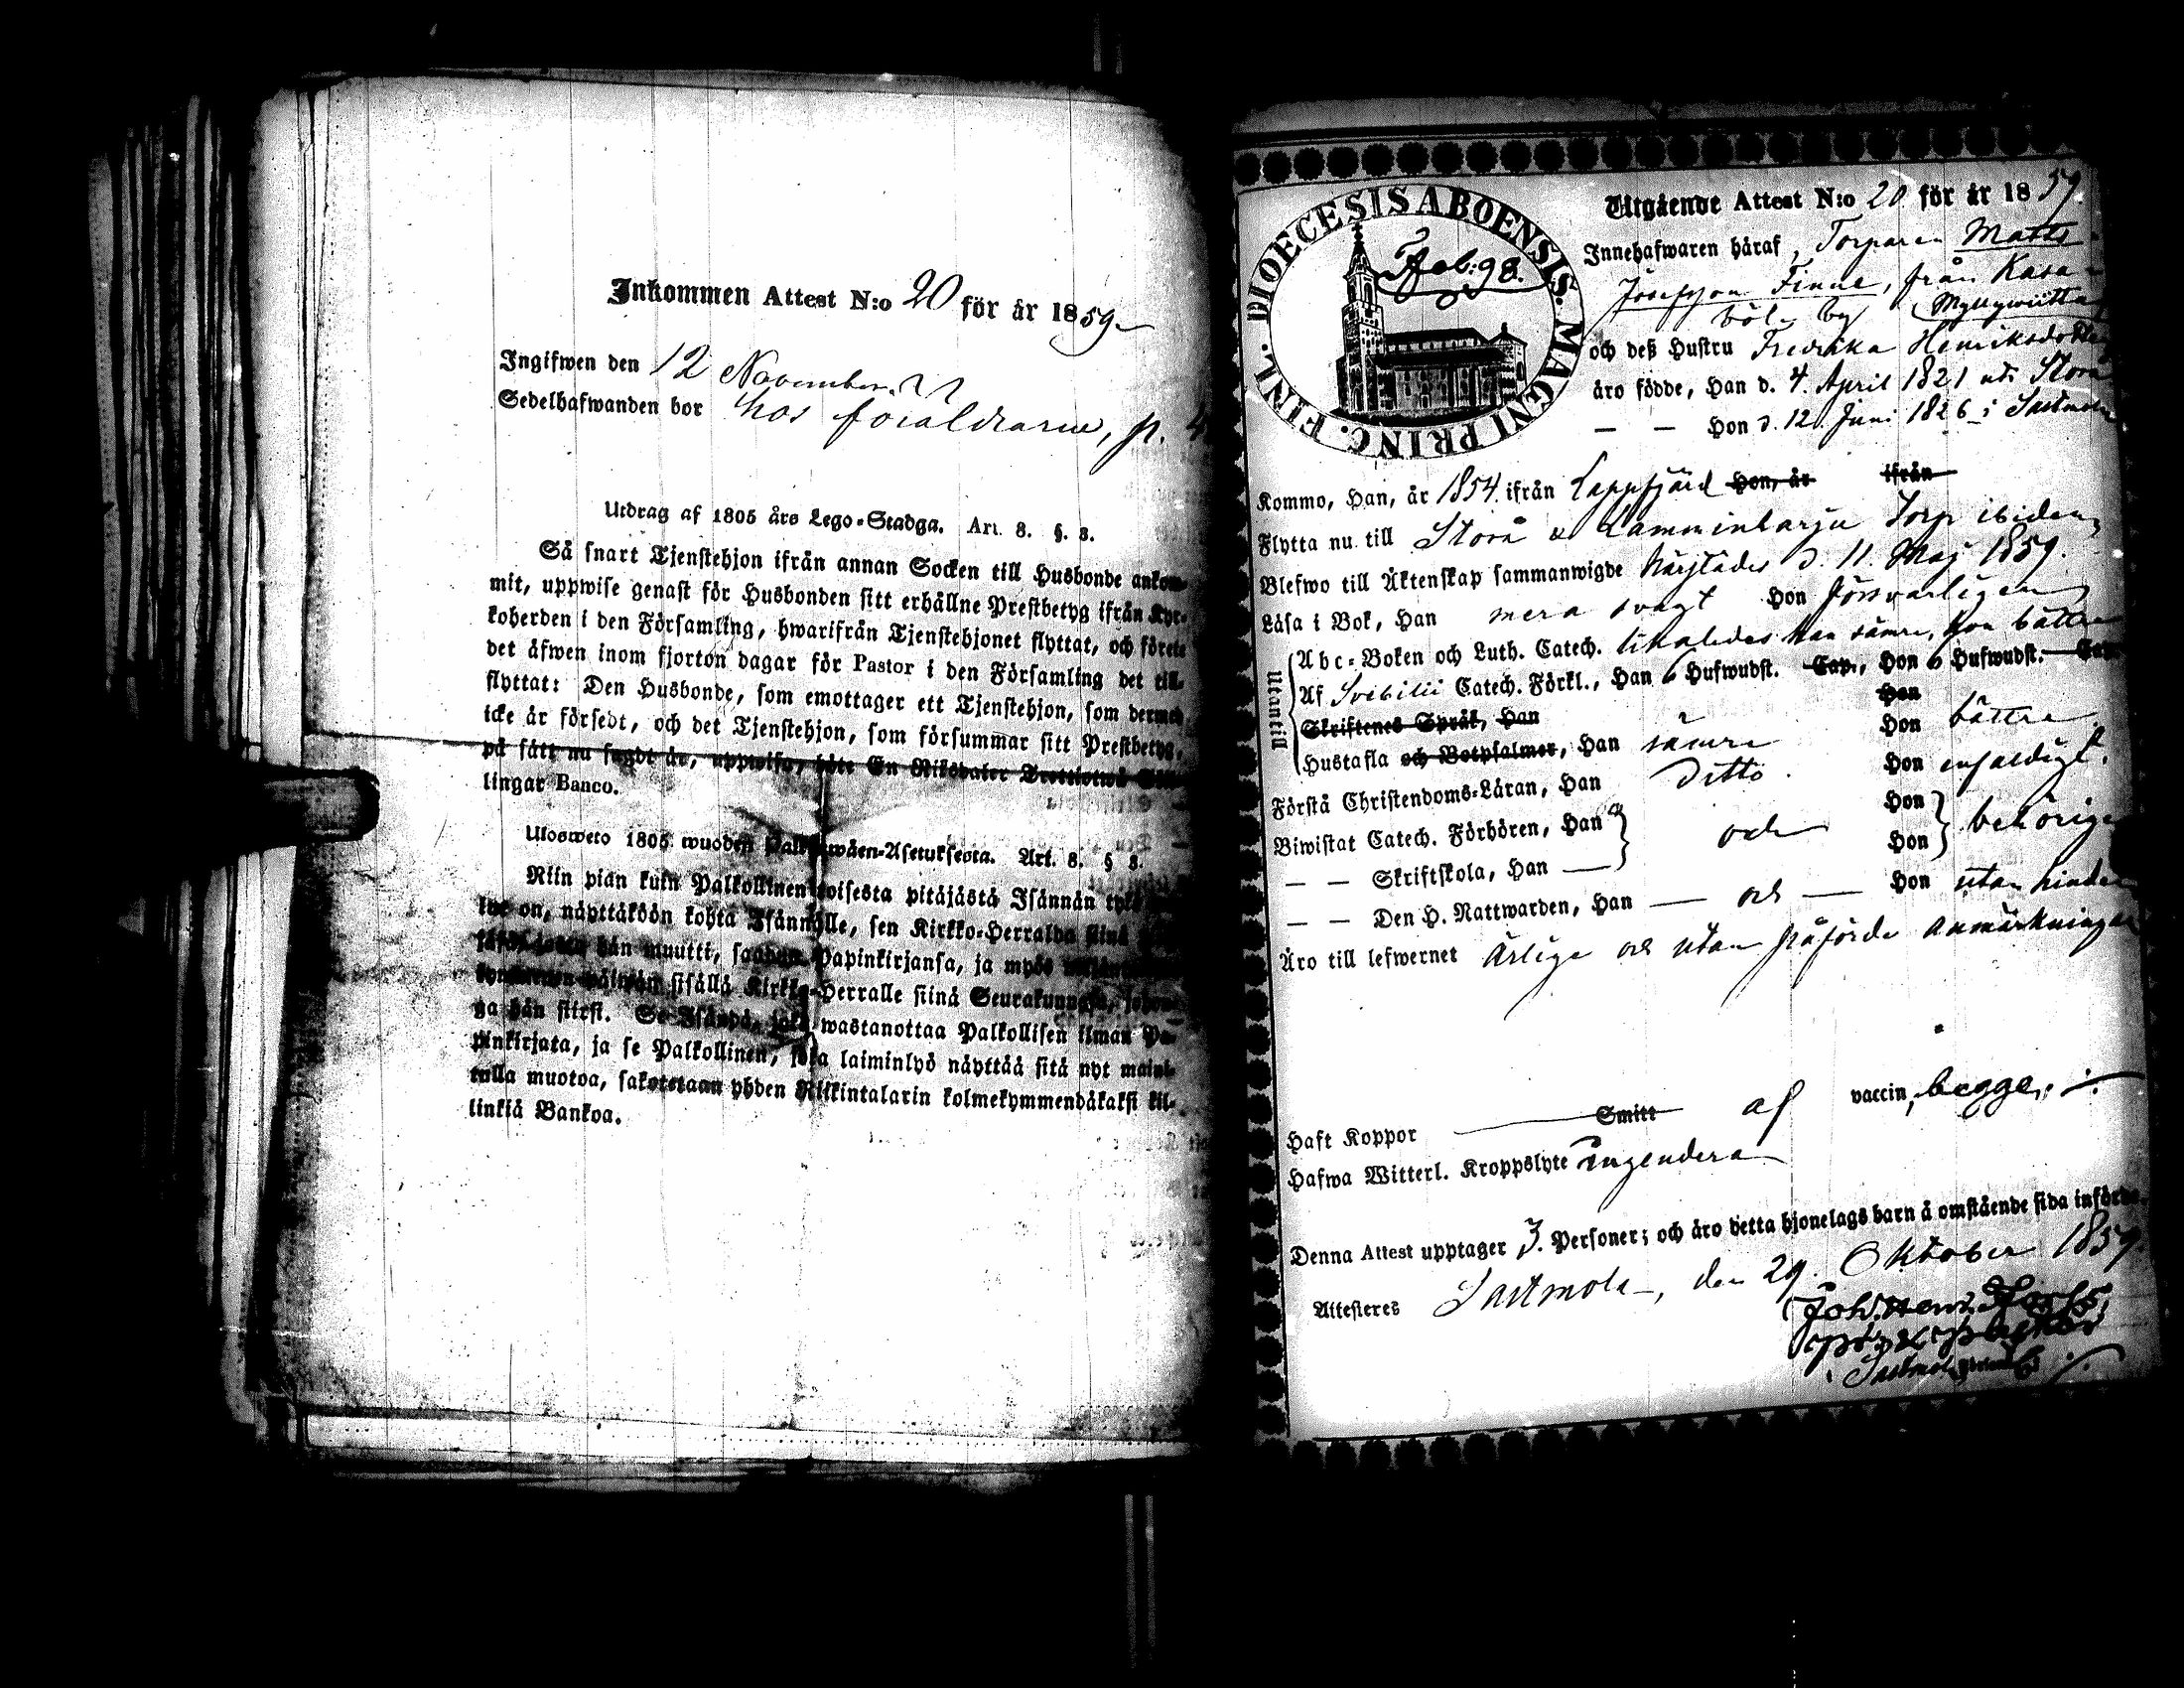 Inkommen Attest N:o 20 för år 1859
Ingifwen den 12 November
Sedelhafwanden bor hos föräldrarne, p.
Utdrag af 1805 års Lego-Stadga. Art. 8. §. 8.
Så snart Tjenstehjon ifrån annan Socken till Husbonde ankom-
mit, uppwise genast för Husbonden sitt erhållne Prestbetyg ifrån Kyr-
koherden i den Församling, hwarifrån Tjenstehjonet flyttat, och förete
det äfwen inom fjorton dagar för Pastor i den Församling det till-
flyttat: Den Husbonde, som emottager ett Tjenstehjon, som dermed
icke är försedt, och det Tjenstehjon, som försummar sitt Prestbetyg,
på sätt nu sagdt är, uppwisa, böte En Riksdaler Trettiotwå Skil-
lingar Banco.
Ulosweto 1805 wuoden Palkkawäen-Asetuksesta. Art. 8. § 8.
Niin pian kuin Palkollinen toisesta pitäjästä Isännän tykö
on, näyttäköön kohta Isännälle, sen Kirkko-Herralda siinä
hän muutti, saadun Papinkirjansa, ja myös
sisällä Kirkko-Herralle siinä Seurakunnasa,
ga hän siirsi. Se Isändä, joka wastanottaa Palkollisen ilman Pa-
pinkirjata, ja se Palkollinen, joka laiminlyö näyttää sitä nyt maini-
tulla muotoa, sakotetaan yhden Riikintalarin kolmekymmendäkaksi kil-
linkiä Bankoa.
DIOECESIS ABOENSIS. MAGNI PRINC. FINL.
Utgående Attest N:o 20 för år 1859
Innehafwaren häraf, Torparen Matts
Josefsson Finne, från Kasa-
böle by
och deß Hustru Fredrika Henriksdotter
äro födde, Han d. 4. April 1821 uti Storå
— — Hon d. 12. Juni 1826 i Sastmola
Kommo, Han, år 1854 ifrån Lappfjärd Hon, år ifrån
Flytta nu till Storå Torp ibidem
Blefwo till Äktenskap sammanwigde härstädes d. 11. Maj 1859.
Läsa i Bok, Han mera svagt Hon försvarligen
Utantill
Abc-Boken och Luth. Catech. likaledes han sämre, hon bättre
Af Svebilii Catech. Förkl., Han 6 Hufwudst. Cap., Hon 6 Hufwudst. Cap.
Skriftenes Språk, Han Hon
Hustafla och Botpsalmer, Han sämre Hon bättre
Förstå Christendoms-Läran, Han ditto. Hon enfaldigt.
Biwistat Catech. Förhören, Han och Hon behörigen
— — Skriftskola, Han — Hon
— — Den H. Nattwarden, Han — och — Hon utan hinder
Äro till lefwernet ärlige och utan påförde anmärkningar
Haft Koppor Smitt af vaccin, begge.
Hafwa Witterl. Kroppslyte Ingendera
Denna Attest upptager 3. Personer; och äro detta hjonelags barn å omstående sida införde.
Attesteras Sastmola, den 29. Oktober 1859.
Sastmola